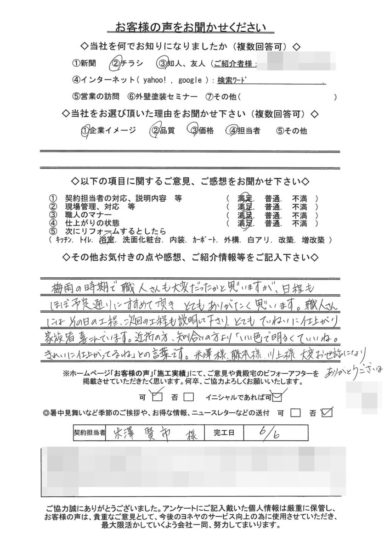 お客様の声をお聞かせください
◇当社を何でお知りになりましたか（複数回答可）◇
①新聞 ②チラシ ③知人、友人（ご紹介者様：
④インターネット（yahoo!, google）：検索ワード
⑤営業の訪問 ⑥外壁塗装セミナー ⑦その他（ ）
◇当社をお選び頂いた理由をお聞かせ下さい（複数回答可）◇
①企業イメージ ②品質 ③価格 ④担当者 ⑤その他
◇以下の項目に関するご意見、ご感想をお聞かせ下さい◇
① 契約担当者の対応、説明内容 等 （ 満足 普通 不満 ）
② 現場管理、対応 等 （ 満足 普通 不満 ）
③ 職人のマナー （ 満足 普通 不満 ）
④ 仕上がりの状態 （ 満足 普通 不満 ）
⑤ 次にリフォームするとしたら
（キッチン、トイレ、浴室、洗面化粧台、内装、カーポート、外構、白アリ、改築、増改築）
◇その他お気付きの点や感想、ご紹介情報等をご記入下さい◇
梅雨の時期で職人さんも大変だったかと思いますが、日程も
ほぼ予定通りに進めて頂き とてもありがたく思います。職人さん
にはその日の工程、次回の工程も説明して下さり とても ていねいに仕上がり
家族一同喜んでいます。近所の方、知り合いの方より「いい色で明るくていいね。
きれいに仕上がってるね」との言葉です。米澤様 川上様 大変お世話になり
ありがとうござい
※ホームページ「お客様の声」「施工実績」にて、ご意見や貴殿宅のビフォーアフターを
掲載させていただきたく思います。何卒、ご協力よろしくお願いいたします。
可 イニシャルであれば可
◎暑中見舞いなど季節のご挨拶や、お得な情報、ニュースレターなどの送付 可 否
契約担当者 米澤 賢市 様 完工日 6/6
ご協力誠にありがとうございました。アンケートにご記入戴いた個人情報は厳重に保管し、
お客様の声は、貴重なご意見として、今後のヨネヤのサービス向上の為に使用させていただき、
最大限活かしていくよう会社一同、努力してまいります。